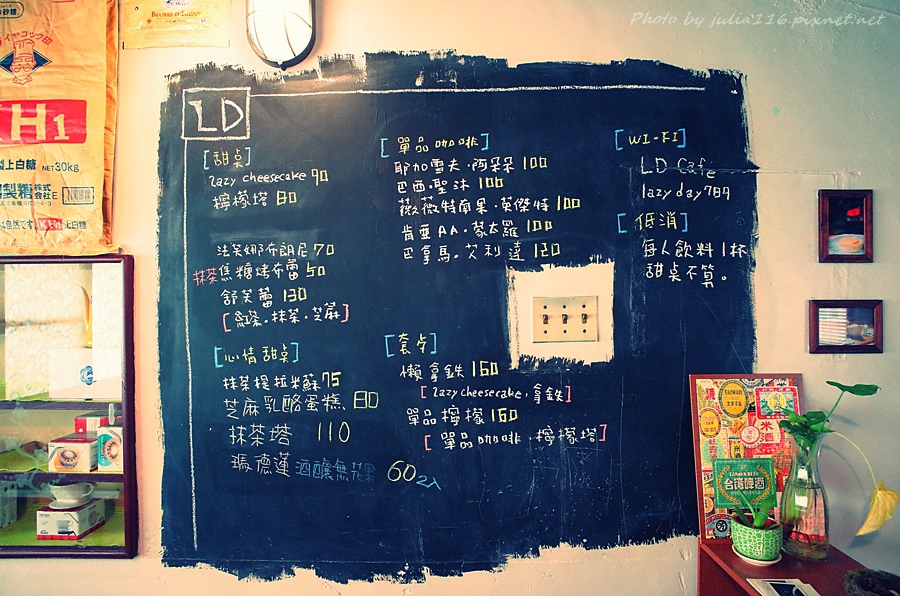 Photo by julia116.pixnet.net
BEURRE D'ISIGNY
H1
製上白糖 NET30KG
製糖 株式会社
上白糖
LD
[甜桌]
lazy cheesecake 90
檸檬塔 80
法芙娜布朗尼 70
抹茶焦糖烤布蕾 50
舒芙蕾 130
[紅茶.抹茶.芝麻]
[心情甜桌]
抹茶提拉米蘇 75
芝麻乳酪蛋糕 80
抹茶塔 110
瑪德蓮 酒釀無花果 60 2入
[單品咖啡]
耶加雪夫.阿朵朵 100
巴西.聖沐 100
薇薇特南果.英傑特 100
肯亞AA.蒙太羅 100
巴拿馬.艾利達 120
[套夕]
懶拿鐵 160
[lazy cheesecake.拿鐵]
單品檸檬 160
[單品咖啡.檸檬塔]
[WI-FI]
LD Cafe
lazyday789
[低消]
每人飲料1杯
甜桌不算。
TAIWAN
台灣啤酒